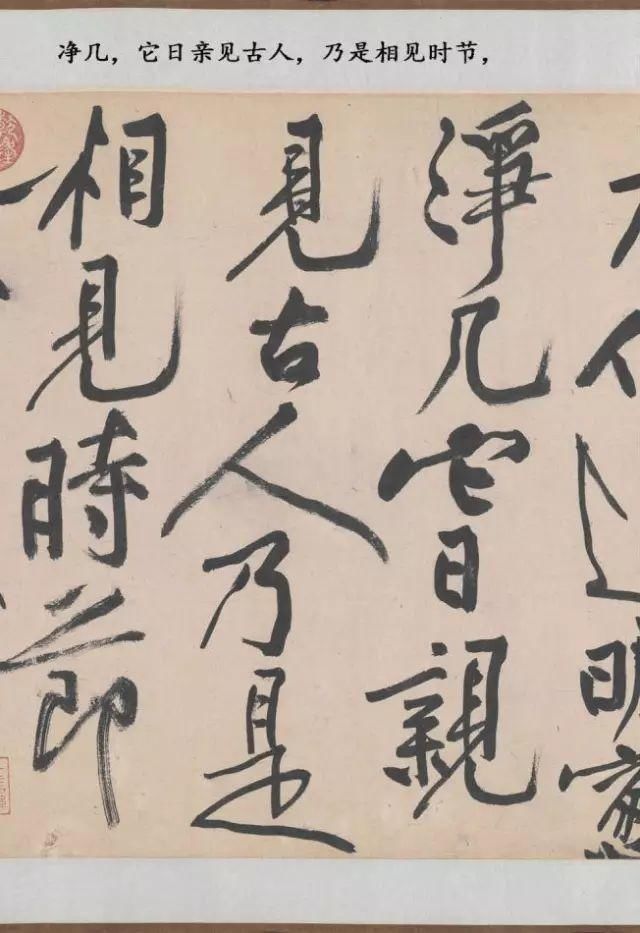 净几，它日亲见古人，乃是相见时节，
淨几它日親
見古人乃是
相見時節